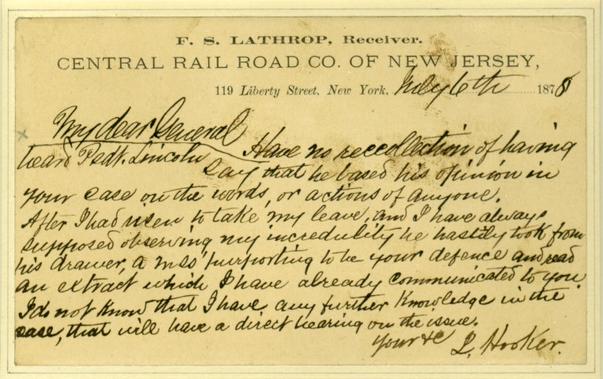 F. S. LATHROP, Receiver.
CENTRAL RAIL ROAD CO. OF NEW JERSEY,
119 Liberty Street, New York, July 6th 1878
My dear General
Have no recollection of having
heard Presdt. Lincoln say that he based his opinion in
your case on the words, or actions of anyone.
After I had risen to take my leave, and I have always
supposed observing my incredulity he hastily took from
his drawer, a mss, purporting to be your defence and read
an extract which I have already communicated to you
I do not know that I have any further knowledge in the
case, that will have a direct bearing on the issue.
Your &c
J. Hooker.